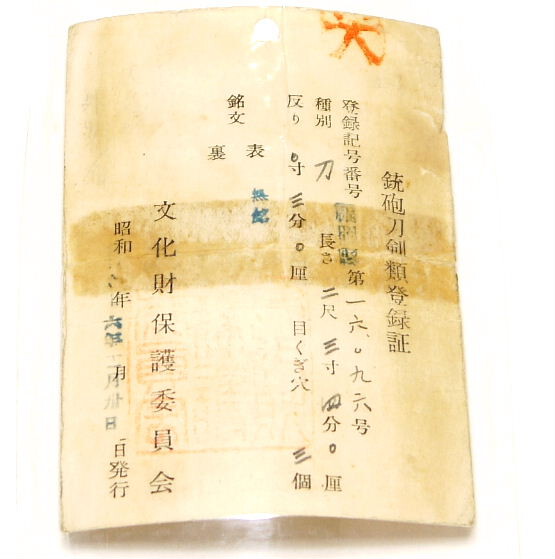 大
銃砲刀剣類登録証
登録記号番号 第一六〇九六号
種別 刀 長さ 二尺三寸四分〇厘
反り 〇寸三分〇厘 目くぎ穴 三個
銘文 表 無銘
裏
文化財保護委員会
昭和 年 月 日発行